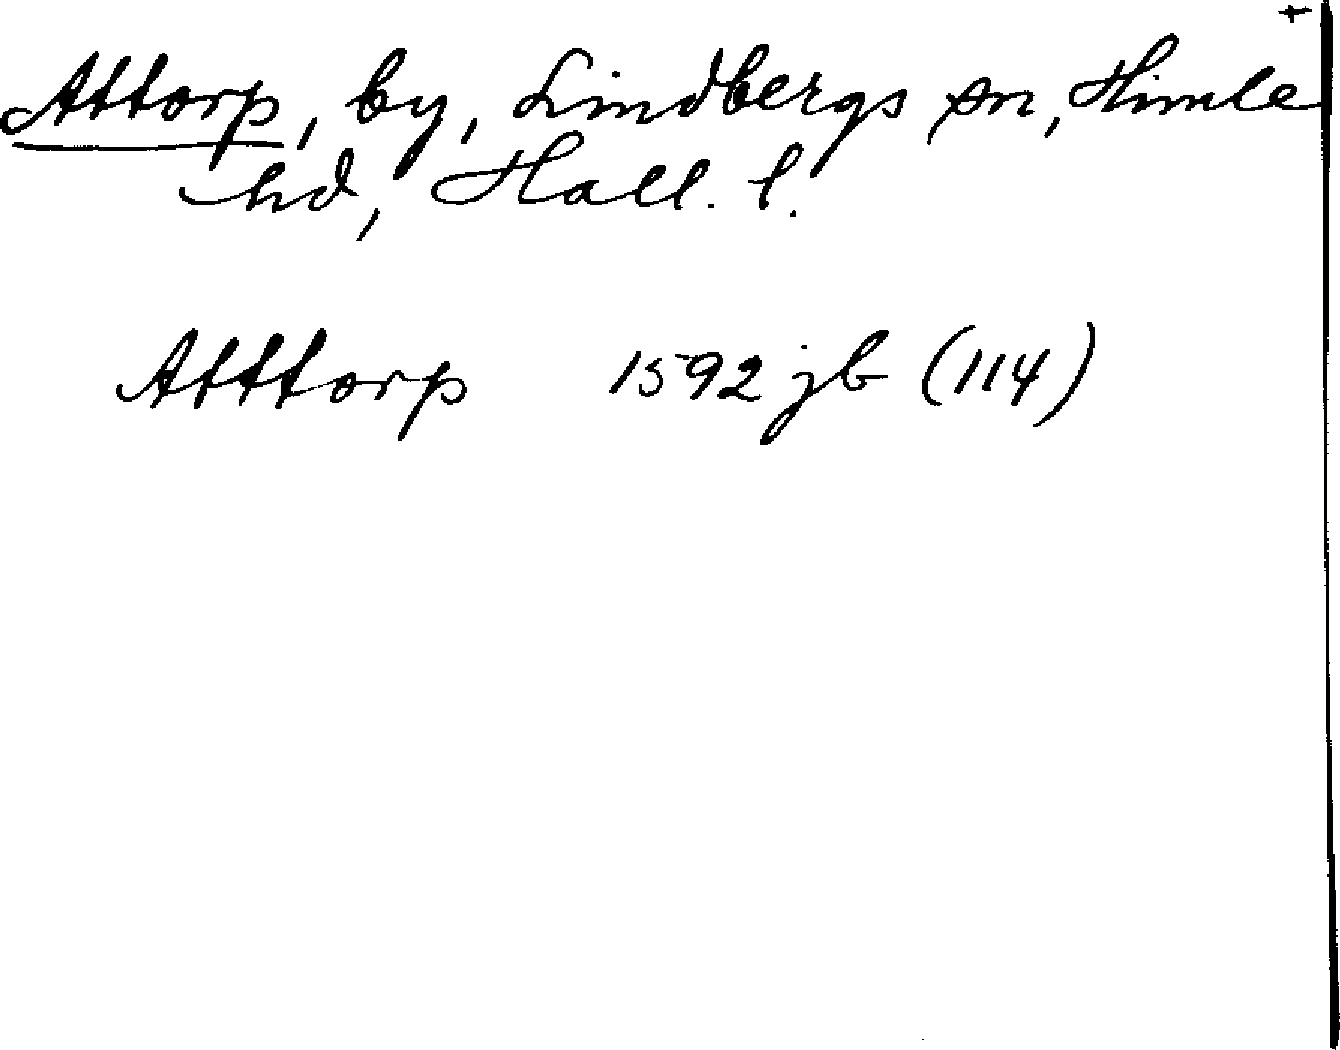 +
Attorp, by, Lindbergs sn, Himle
hd, Hall. l.
Atttorp 1592 jb (114)